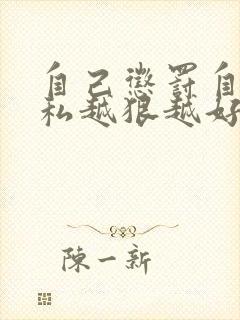 自己懲罰自
私越狠越好
陳一新